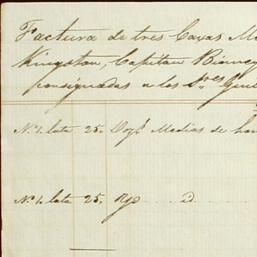 Factura de tres Caxas M
Kingston, Capitan
consignadas a los S.res
N.1. lata 25. Doz.s Medias de
N.1. lata 25. id